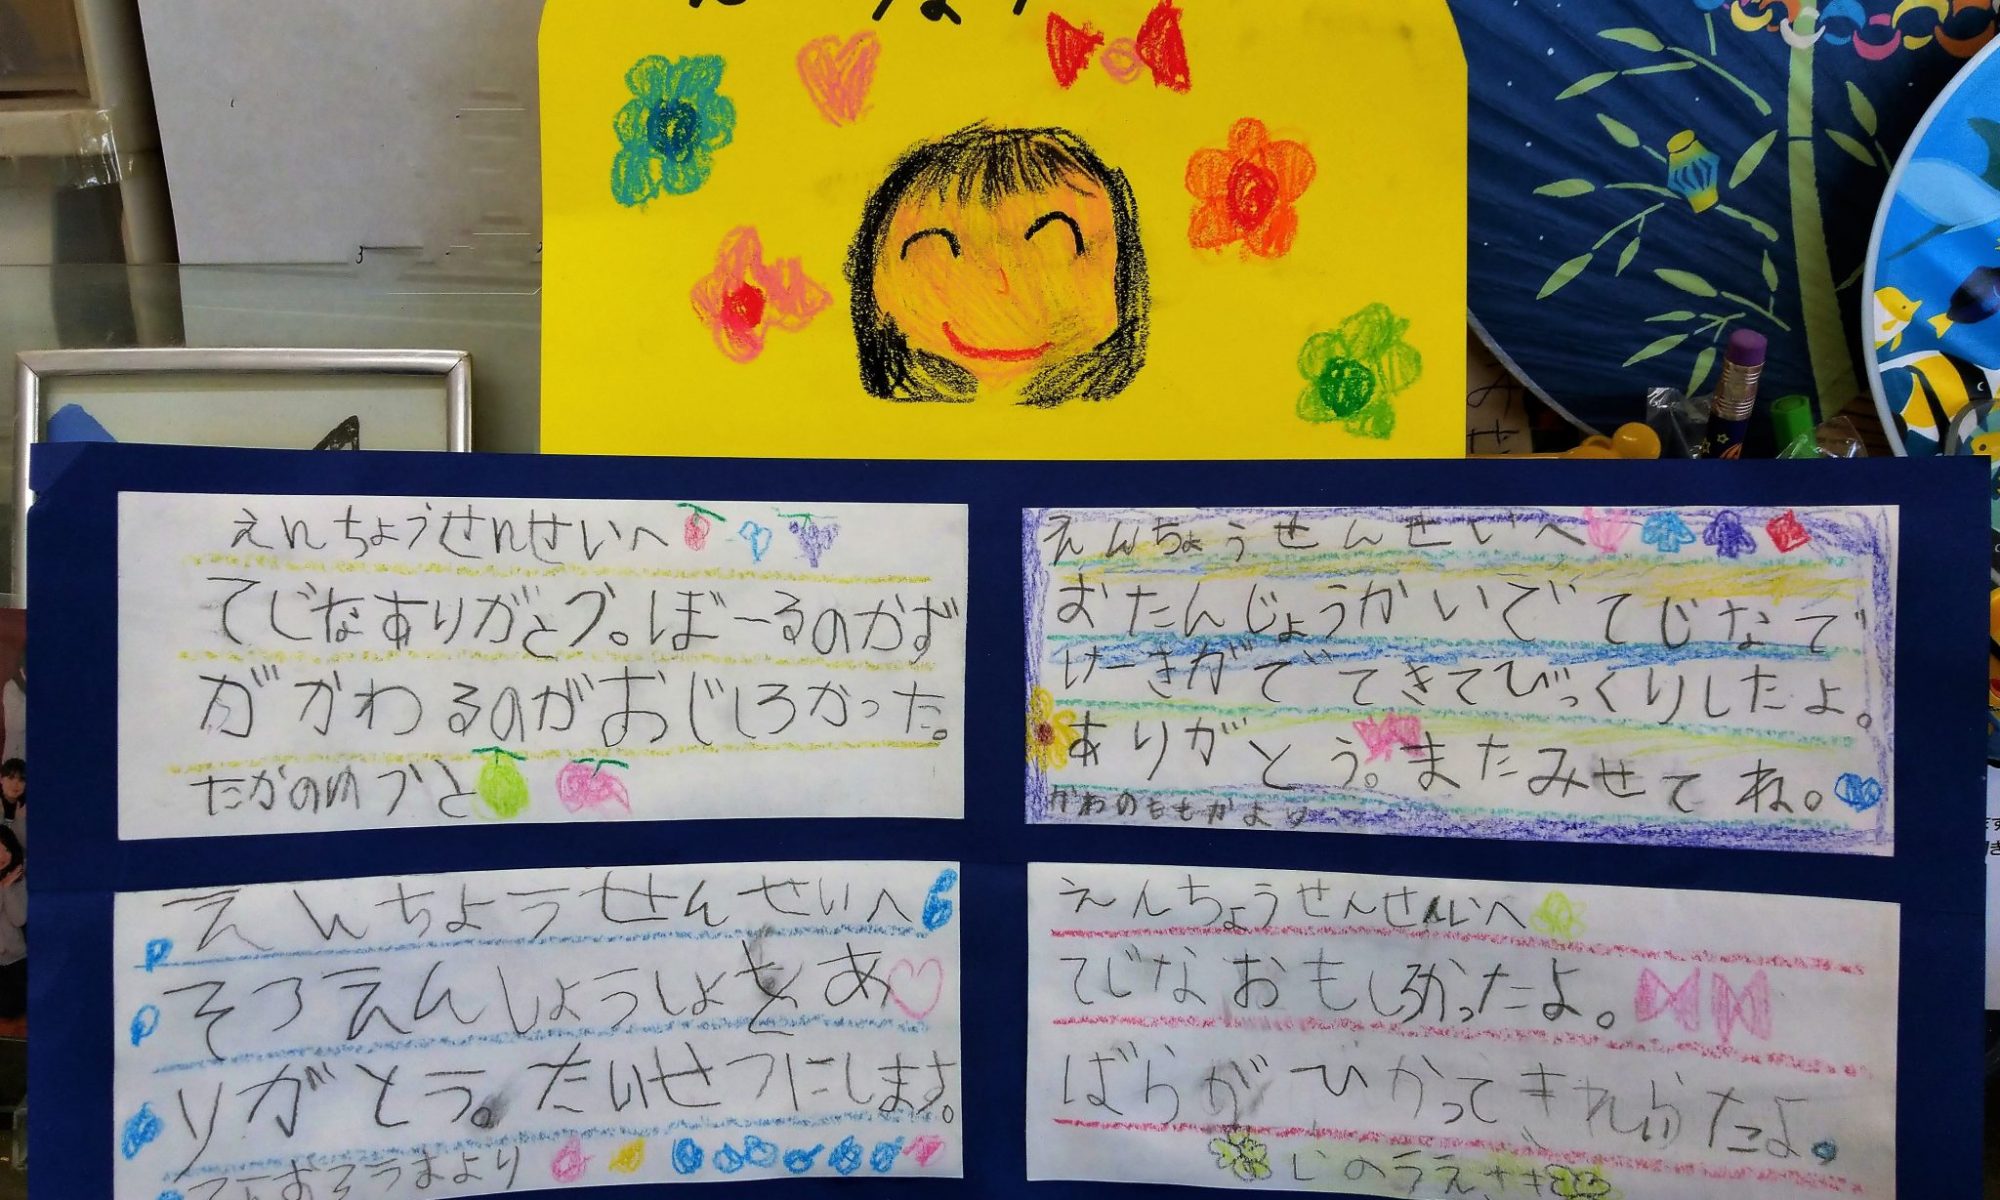 えんちょうせんせいへ
てじなありがとう。ぼーるのかず
がかわるのがおじしろかった。
たかのゆづと
えんちょうせんせいへ
おたんじょうかいでてじなで
けーきがでてきてびっくりしたよ。
ありがとう。またみせてね。
かわのももかより
えんちょうせんせいへ
そつえんしょうしょをあ
りがとう。たいせつにします。
そうまより
えんちょうせんせいへ
てじなおもしろかったよ。
ばらがひかってきれいだったよ。
いのうえさき